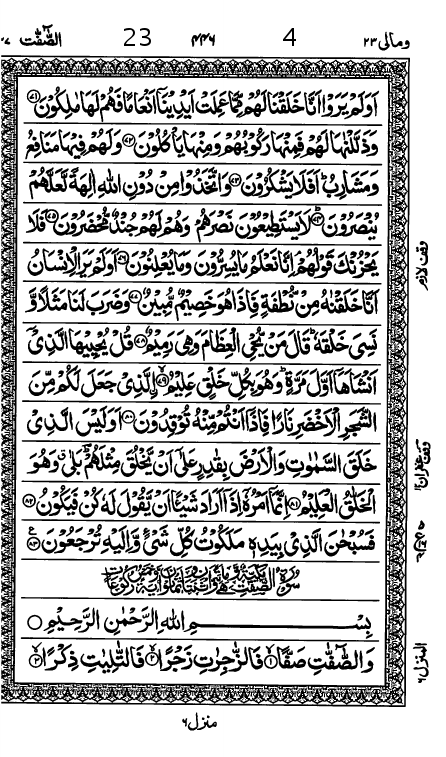 ومالی ٢٣ ٤ ٤٤٦ 23 الصّٰٓفّٰت ٣٧
اَوَلَمْ يَرَوْا اَنَّا خَلَقْنَا لَهُمْ مِّمَّا عَمِلَتْ اَيْدِيْنَاۤ اَنْعَامًا فَهُمْ لَهَا مٰلِكُوْنَ ۝٧١
وَذَلَّلْنٰهَا لَهُمْ فَمِنْهَا رَكُوْبُهُمْ وَمِنْهَا يَاْكُلُوْنَ ۝٧٢ وَلَهُمْ فِيْهَا مَنَافِعُ
وَمَشَارِبُ ؕ اَفَلَا يَشْكُرُوْنَ ۝٧٣ وَاتَّخَذُوْا مِنْ دُوْنِ اللّٰهِ اٰلِهَةً لَّعَلَّهُمْ
يُنْصَرُوْنَ ۝٧٤ؕ لَا يَسْتَطِيْعُوْنَ نَصْرَهُمْ ۙ وَهُمْ لَهُمْ جُنْدٌ مُّحْضَرُوْنَ ۝٧٥ فَلَا
يَحْزُنْكَ قَوْلُهُمْ ۘ اِنَّا نَعْلَمُ مَا يُسِرُّوْنَ وَمَا يُعْلِنُوْنَ ۝٧٦ اَوَلَمْ يَرَ الْاِنْسَانُ
اَنَّا خَلَقْنٰهُ مِنْ نُّطْفَةٍ فَاِذَا هُوَ خَصِيْمٌ مُّبِيْنٌ ۝٧٧ وَضَرَبَ لَنَا مَثَلًا وَّ
نَسِيَ خَلْقَهٗ ؕ قَالَ مَنْ يُّحْيِ الْعِظَامَ وَهِيَ رَمِيْمٌ ۝٧٨ قُلْ يُحْيِيْهَا الَّذِيْۤ
اَنْشَاَهَاۤ اَوَّلَ مَرَّةٍ ؕ وَهُوَ بِكُلِّ خَلْقٍ عَلِيْمُ ۝٧٩ۙ ۨالَّذِيْ جَعَلَ لَكُمْ مِّنَ
الشَّجَرِ الْاَخْضَرِ نَارًا فَاِذَاۤ اَنْتُمْ مِّنْهُ تُوْقِدُوْنَ ۝٨٠ اَوَلَيْسَ الَّذِيْ
خَلَقَ السَّمٰوٰتِ وَالْاَرْضَ بِقٰدِرٍ عَلٰۤى اَنْ يَّخْلُقَ مِثْلَهُمْ ؕ بَلٰى ۗ وَهُوَ
الْخَلّٰقُ الْعَلِيْمُ ۝٨١ اِنَّمَاۤ اَمْرُهٗۤ اِذَاۤ اَرَادَ شَيْـًٔا اَنْ يَّقُوْلَ لَهٗ كُنْ فَيَكُوْنُ ۝٨٢
فَسُبْحٰنَ الَّذِيْ بِيَدِهٖ مَلَكُوْتُ كُلِّ شَيْءٍ وَّاِلَيْهِ تُرْجَعُوْنَ ۝٨٣ ع
بِسْمِ اللّٰهِ الرَّحْمٰنِ الرَّحِيْمِ ○
وَالصّٰٓفّٰتِ صَفًّا ۝١ۙ فَالزّٰجِرٰتِ زَجْرًا ۝٢ۙ فَالتّٰلِيٰتِ ذِكْرًا ۝٣ۙ
وقف لازم
وقف غفران
المنزل ٦
منزل ٦